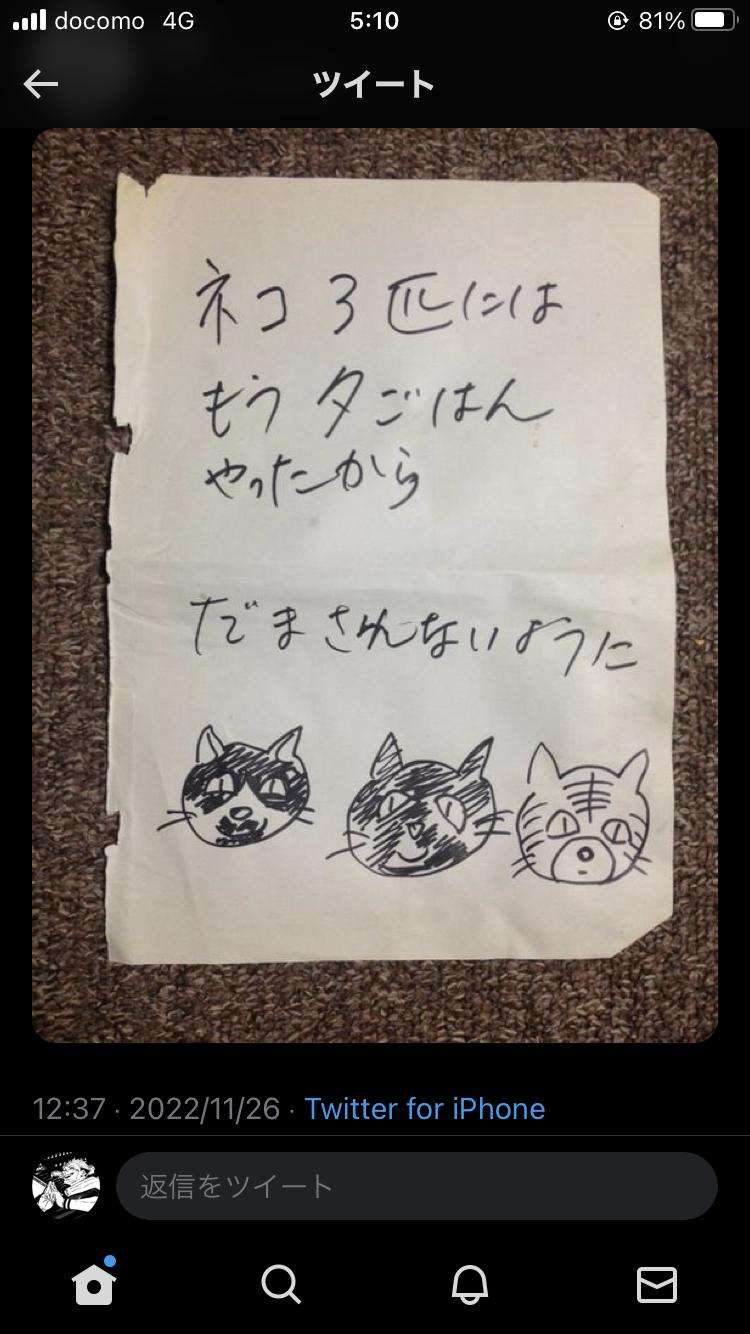 docomo 4G 5:10 81%
ツイート
ネコ3匹には
もう夕ごはん
やったから
だまされないように
12:37 · 2022/11/26 · Twitter for iPhone
返信をツイート